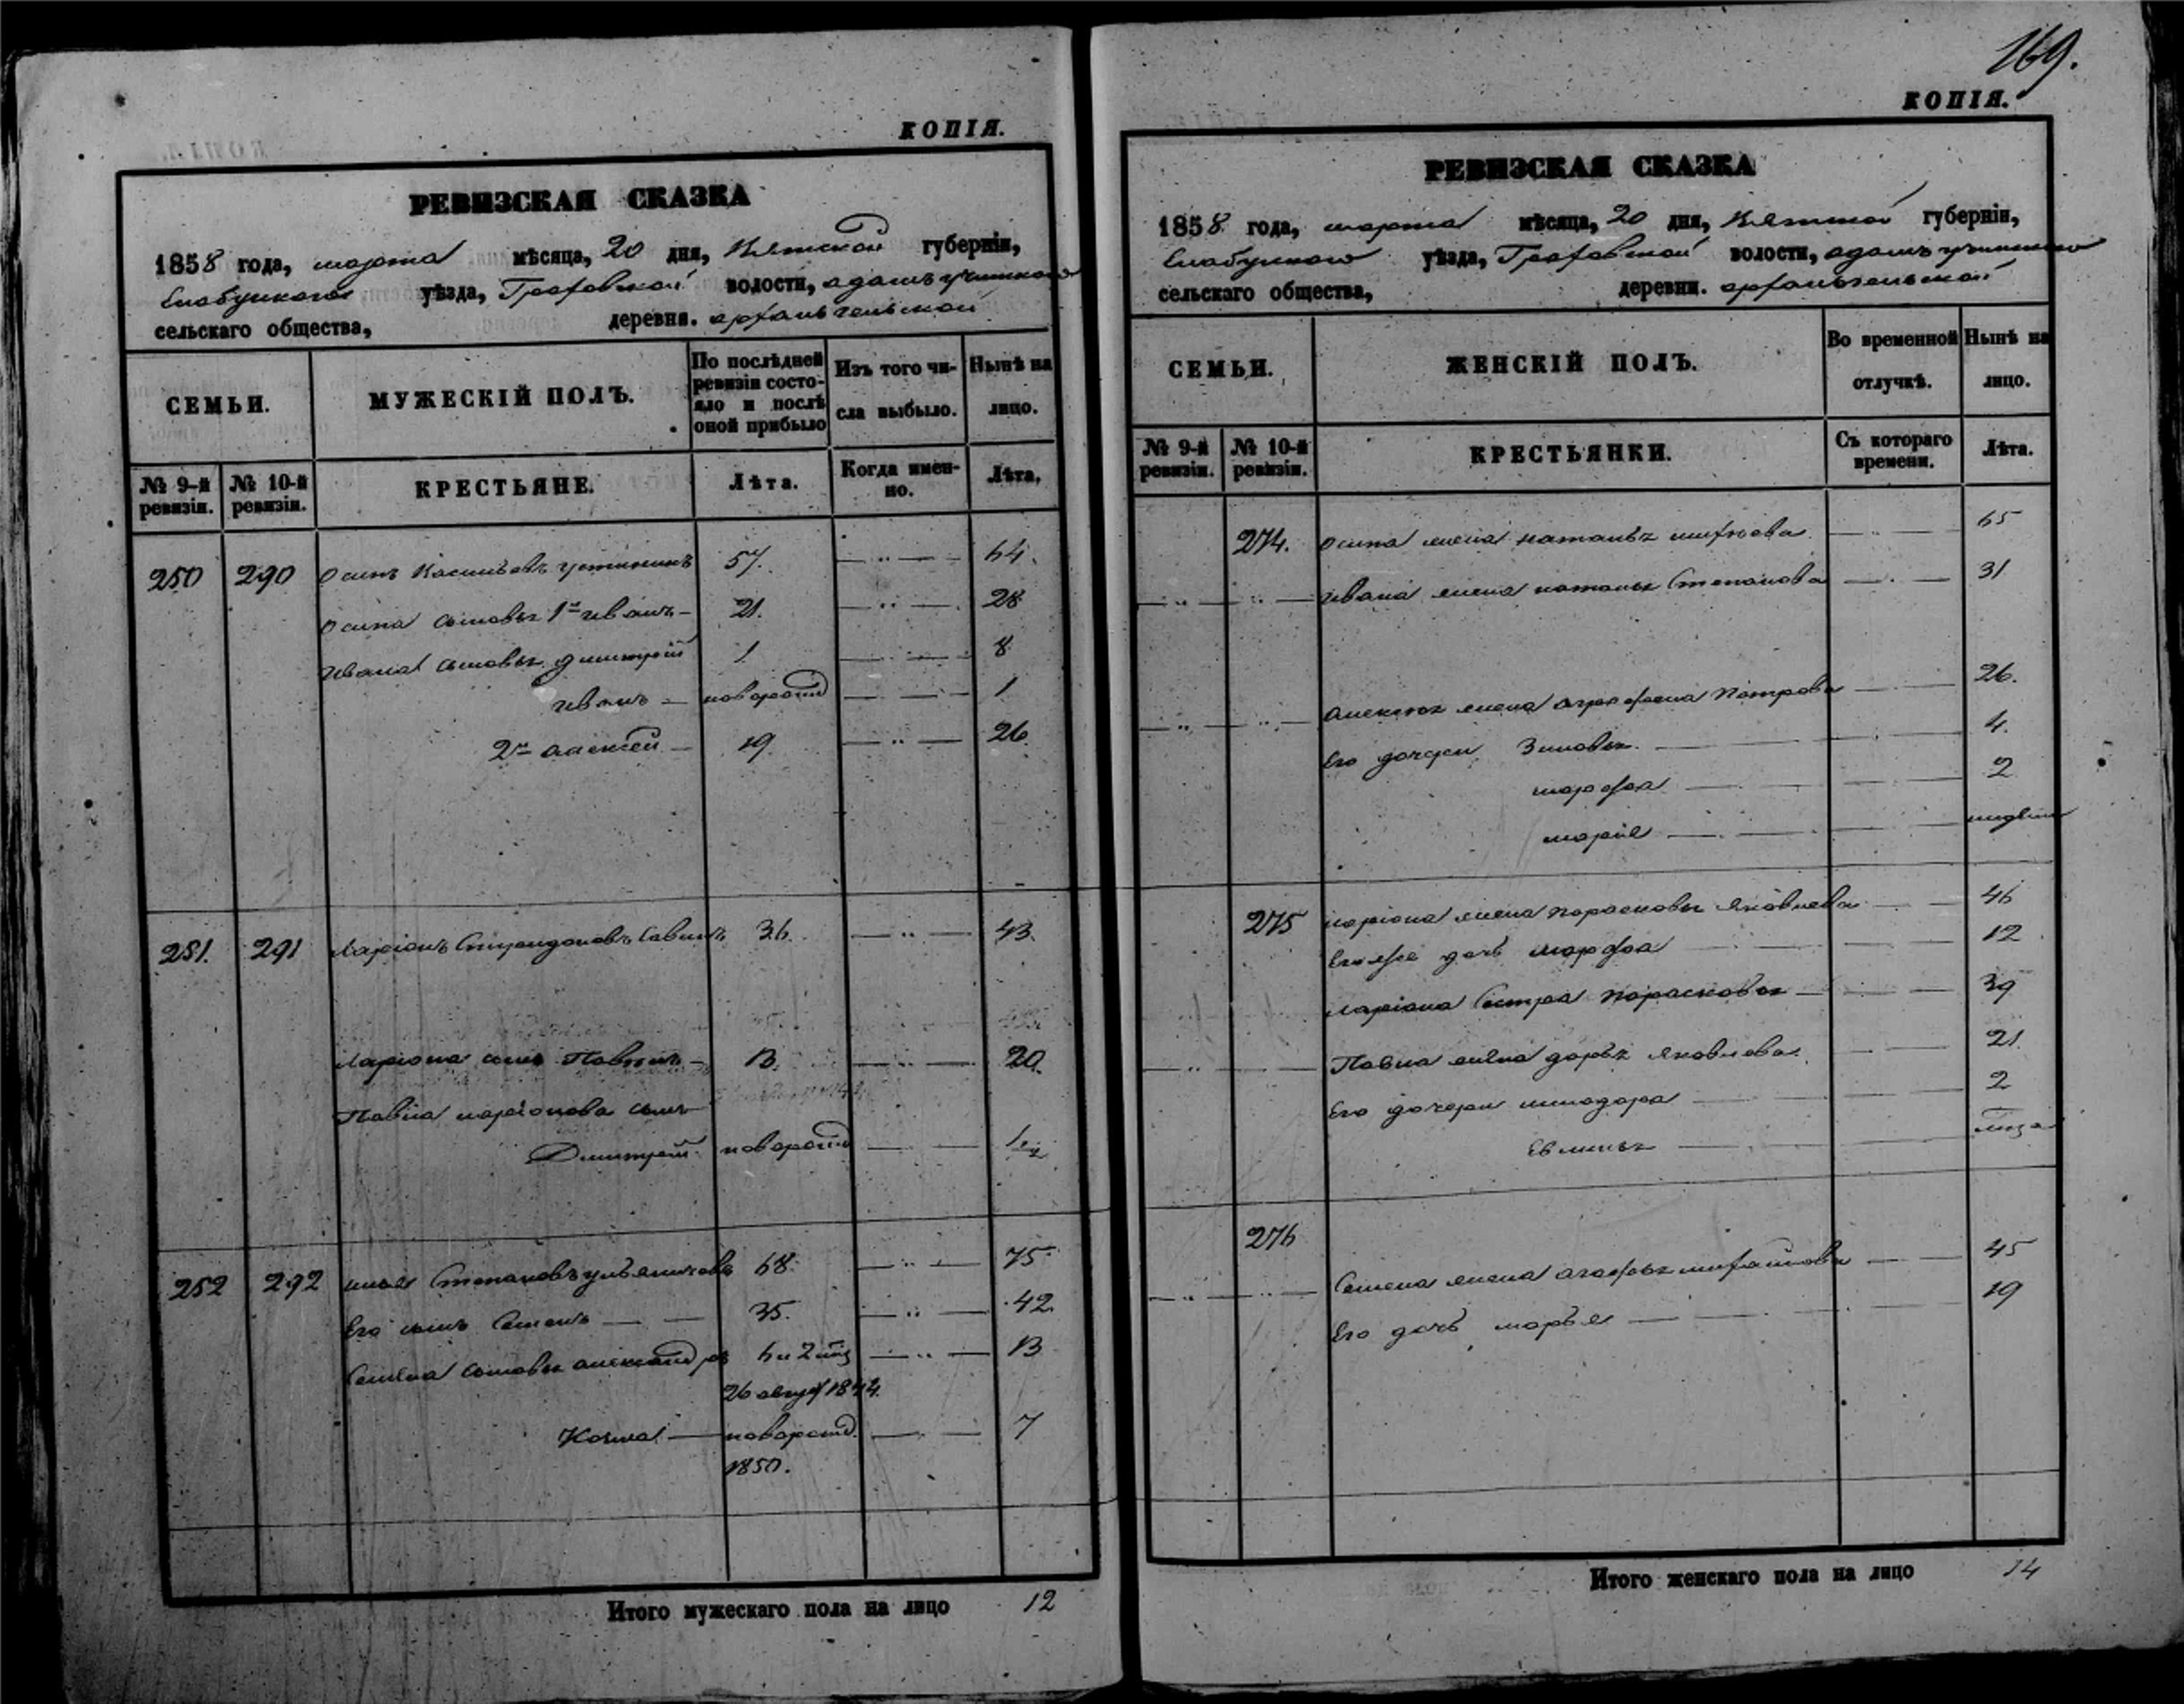 КОПІЯ.
РЕВИЗСКАЯ СКАЗКА
1858 года, марта мѣсяца, 20 дня, Вятской губерніи,
Елабужскаго уѣзда, Граховской волости,
сельскаго общества, деревни. архангельской
СЕМЬИ.
МУЖЕСКІЙ ПОЛЪ.
По послѣдней ревизіи состояло и послѣ оной прибыло
Изъ того числа выбыло.
Нынѣ на лицо.
№ 9-й ревизіи.
№ 10-й ревизіи.
КРЕСТЬЯНЕ.
Лѣта.
Когда именно.
Лѣта.
250 290 Осипъ Васильевъ устининъ 57. —„— 64.
Осипа сыновья 1й иванъ — 21. —„— 28
Ивана сыновья дмитрей 1 —„— 8
иванъ — новорожд —„— 1
2й алексей — 19. —„— 26
251. 291 Ларіонъ Савинъ 36. —„— 43.
Ларіона сынъ Павелъ — 13. —„— 20.
Павла ларіонова сынъ
Дмитрей новорожд —
252 292 илья Степановъ 68. —„— 75
Его сынъ Семенъ — 35. —„— 42.
Семена сыновья александръ 6 и 2 —„— 13
26 1844.
Козма — новорожд. —„— 7
1850.
Итого мужескаго пола на лицо 12
169.
КОПІЯ.
РЕВИЗСКАЯ СКАЗКА
1858 года, марта мѣсяца, 20 дня, Вятской губерніи,
Елабужскаго уѣзда, Граховской волости,
сельскаго общества, деревни. архангельской
СЕМЬИ.
ЖЕНСКІЙ ПОЛЪ.
Во временной отлучкѣ.
Нынѣ на лицо.
№ 9-й ревизіи.
№ 10-й ревизіи.
КРЕСТЬЯНКИ.
Съ котораго времени.
Лѣта.
274. Осипа жена наталья — 65
Ивана жена наталья Степанова — 31
алексея жена аграфена Петрова — 26.
Его дочери Зиновья — 4.
марфа — 2
марія —
275 ларіона жена парасковья яковлева — 46
Его же дочь марфа — 12
ларіона сестра парасковья — 39
Павла жена дарья яковлева — 21
Его дочери — 2
276 Семена жена агафья михайлова — 45
Его дочь марья — 19
Итого женскаго пола на лицо 14